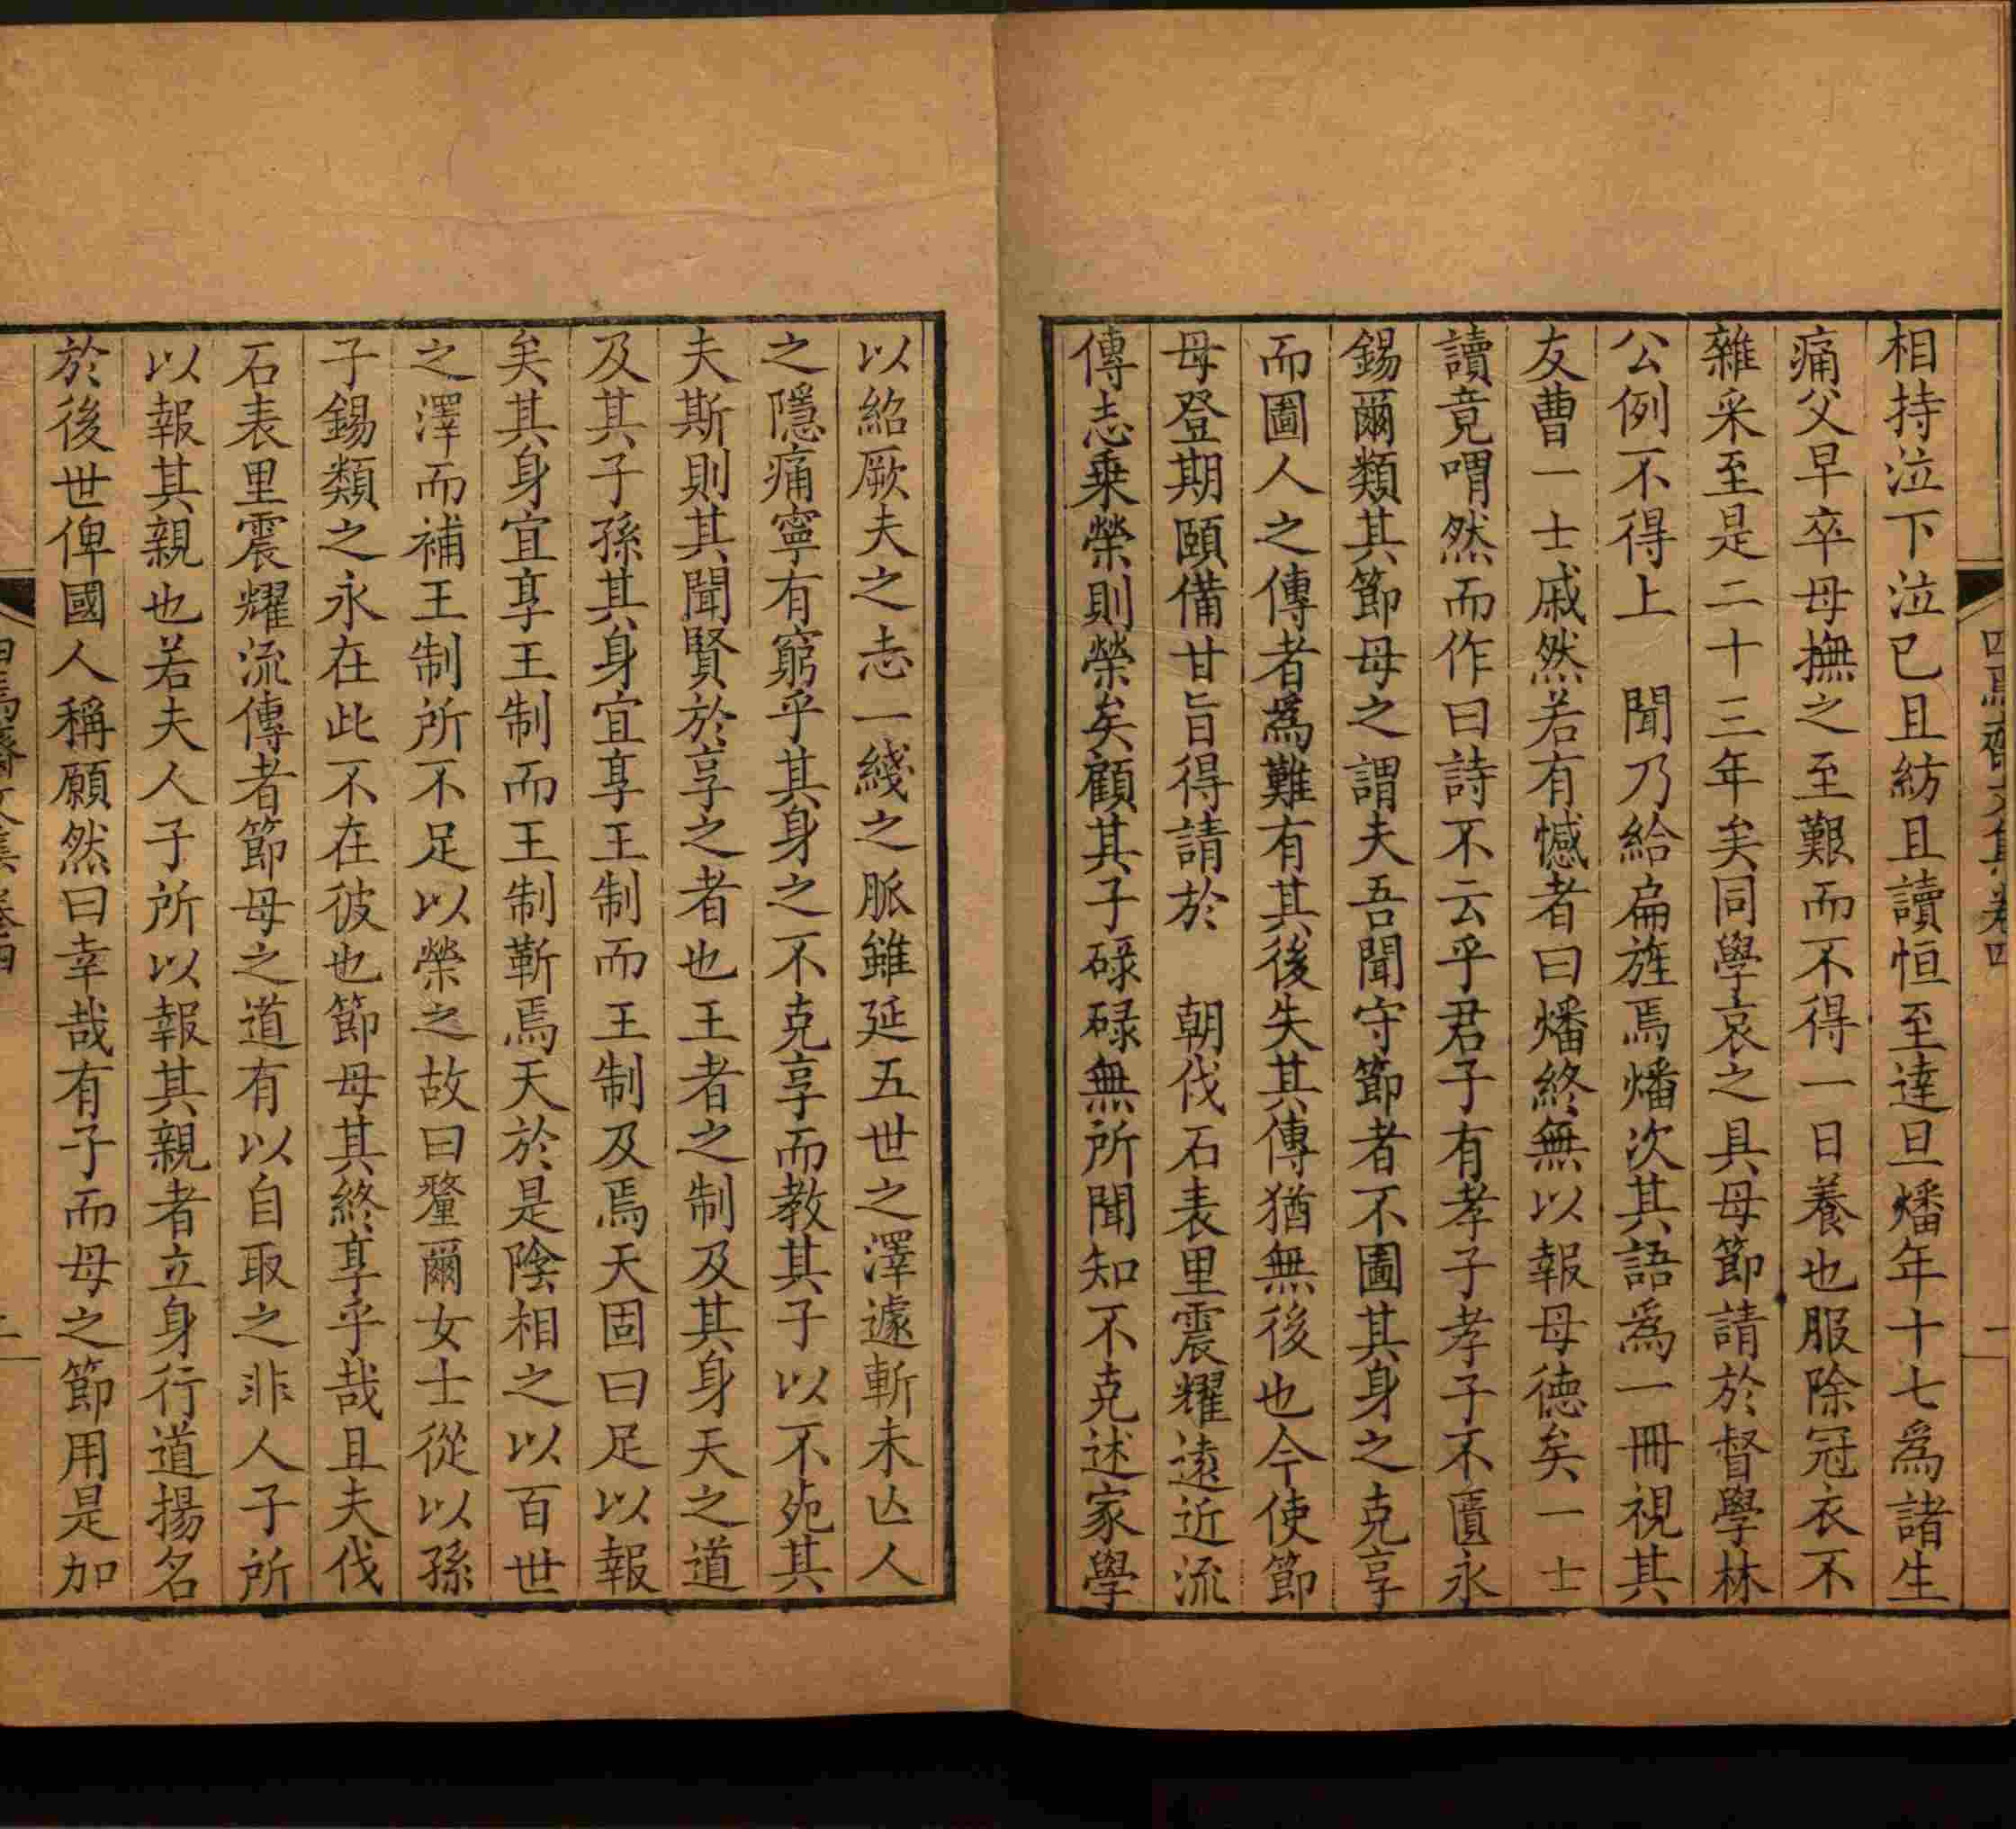 相持泣下泣已且紡且讀恒至達旦燔年十七爲諸生
痛父早卒母撫之至艱而不得一日養也服除冠衣不
雜采至是二十三年矣同學哀之具母節請於督學林
公例不得上　聞乃給扁旌焉燔次其語爲一冊視其
友曹一士戚然若有憾者曰燔終無以報母德矣一士
讀竟喟然而作曰詩不云乎君子有孝子孝子不匱永
錫爾類其節母之謂夫吾聞守節者不圖其身之克享
而圖人之傳者爲難有其後失其傳猶無後也今使節
母登期頤備甘旨得請於　朝伐石表里震耀遠近流
傳志乘榮則榮矣顧其子碌碌無所聞知不克述家學
以紹厥夫之志一綫之脈雖延五世之澤遽斬未亾人
之隱痛寧有窮乎其身之不克享而教其子以不死其
夫斯則其聞賢於享之者也王者之制及其身天之道
及其子孫其身宜享王制而王制及焉天固曰足以報
矣其身宜享王制而王制靳焉天於是陰相之以百世
之澤而補王制所不足以榮之故曰釐爾女士從以孫
子錫類之永在此不在彼也節母其終享乎哉且夫伐
石表里震耀流傳者節母之道有以自取之非人子所
以報其親也若夫人子所以報其親者立身行道揚名
於後世俾國人稱願然曰幸哉有子而母之節用是加
四焉齋文集卷四